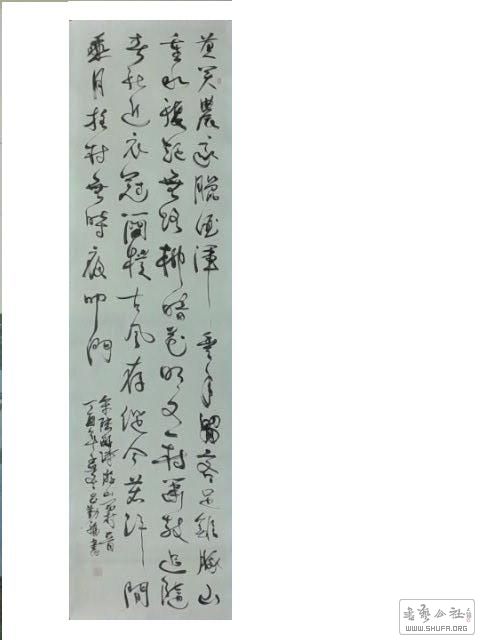 莫笑農家臘酒渾豐年留客足雞豚山
重水複疑無路柳暗花明又一村簫鼓追隨
春社近衣冠簡樸古風存從今若許閒
乘月拄杖無時夜叩門
丁酉年
書
书艺公社
WWW.SHUFA.ORG